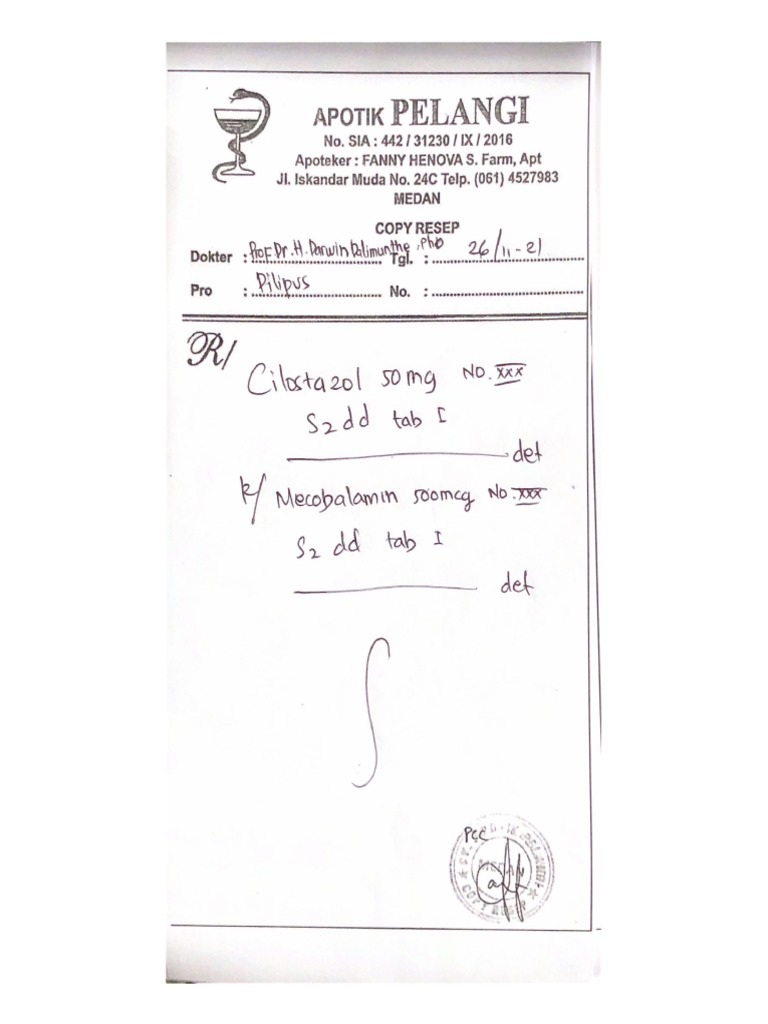 APOTIK PELANGI
No. SIA : 442 / 31230 / IX / 2016
Apoteker : FANNY HENOVA S. Farm, Apt
Jl. Iskandar Muda No. 24C Telp. (061) 4527983
MEDAN
COPY RESEP
Dokter : Prof. Dr. H. Darwin Dalimunthe, PhD Tgl. : 26/11-21
Pro : Pilipus No. :
R/
Cilostazol 50 mg No. XXX
S2dd tab I
det
R/ Mecobalamin 500mcg No. XXX
S2 dd tab I
det
Pcc
MEDAN